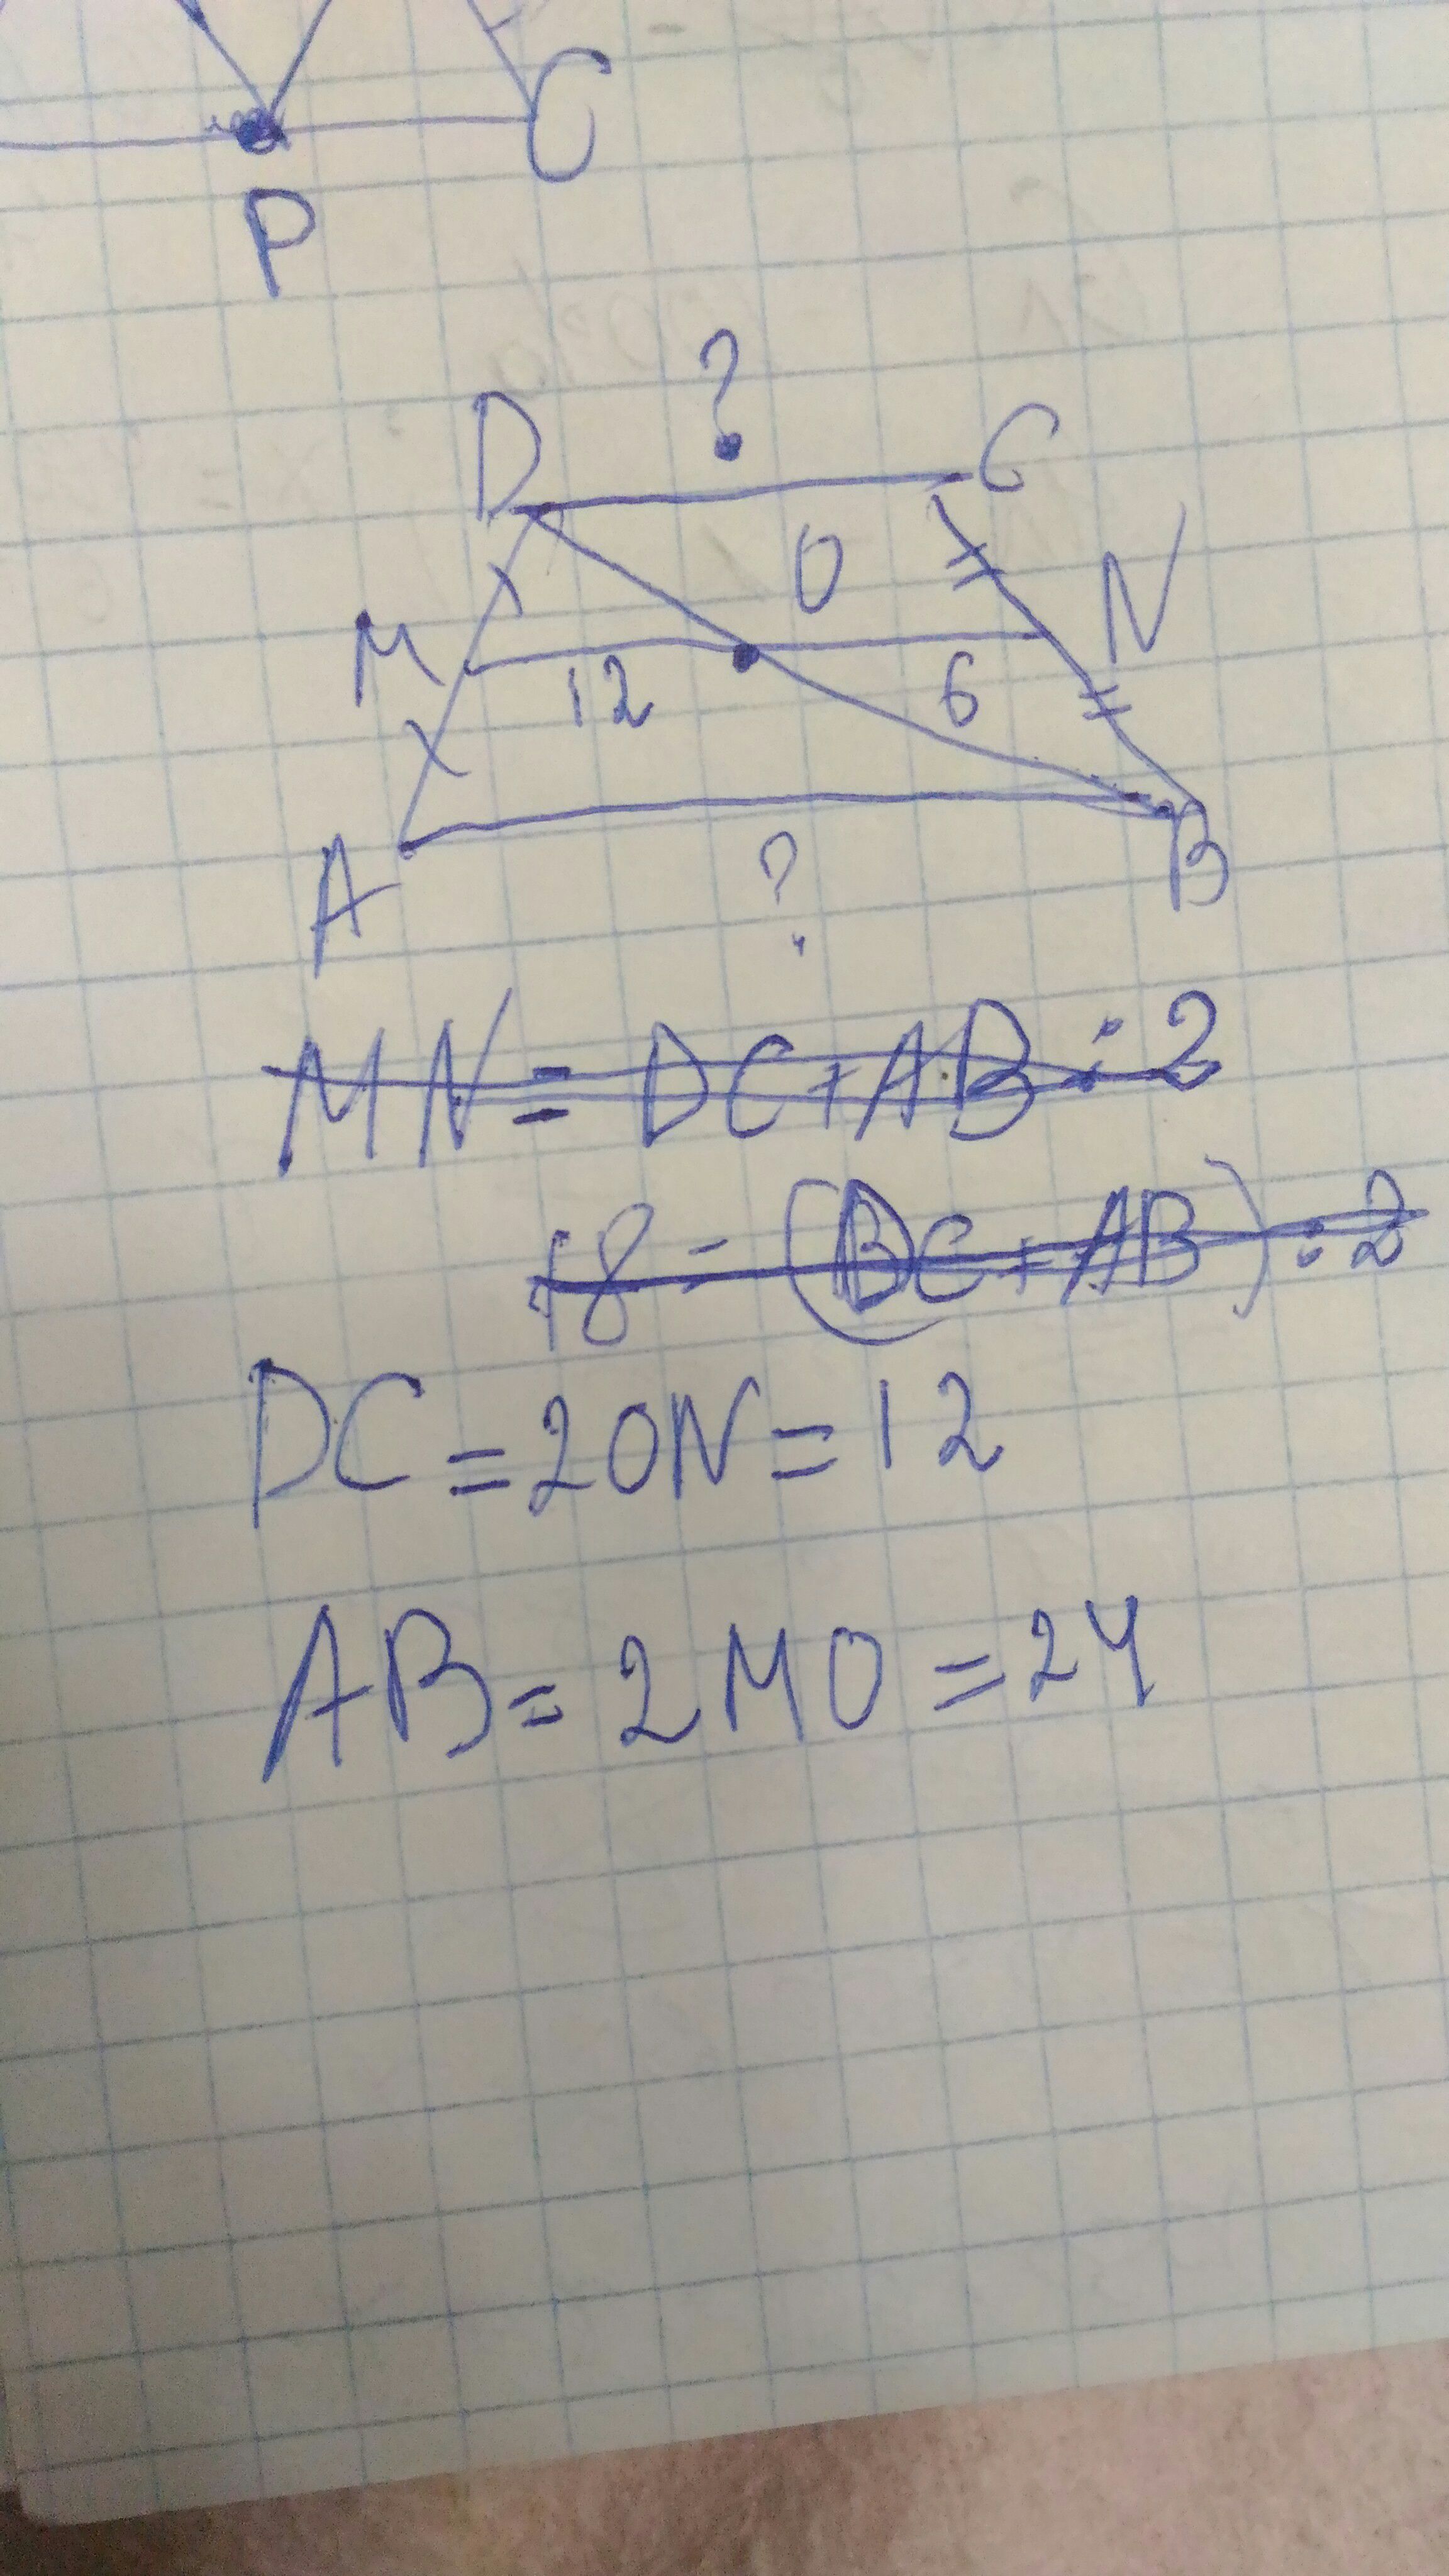 C
P
?
D C
O
M N
12 6
A B
?
MN = DC + AB : 2
18 = (DC + AB) : 2
DC = 2ON = 12
AB = 2MO = 24